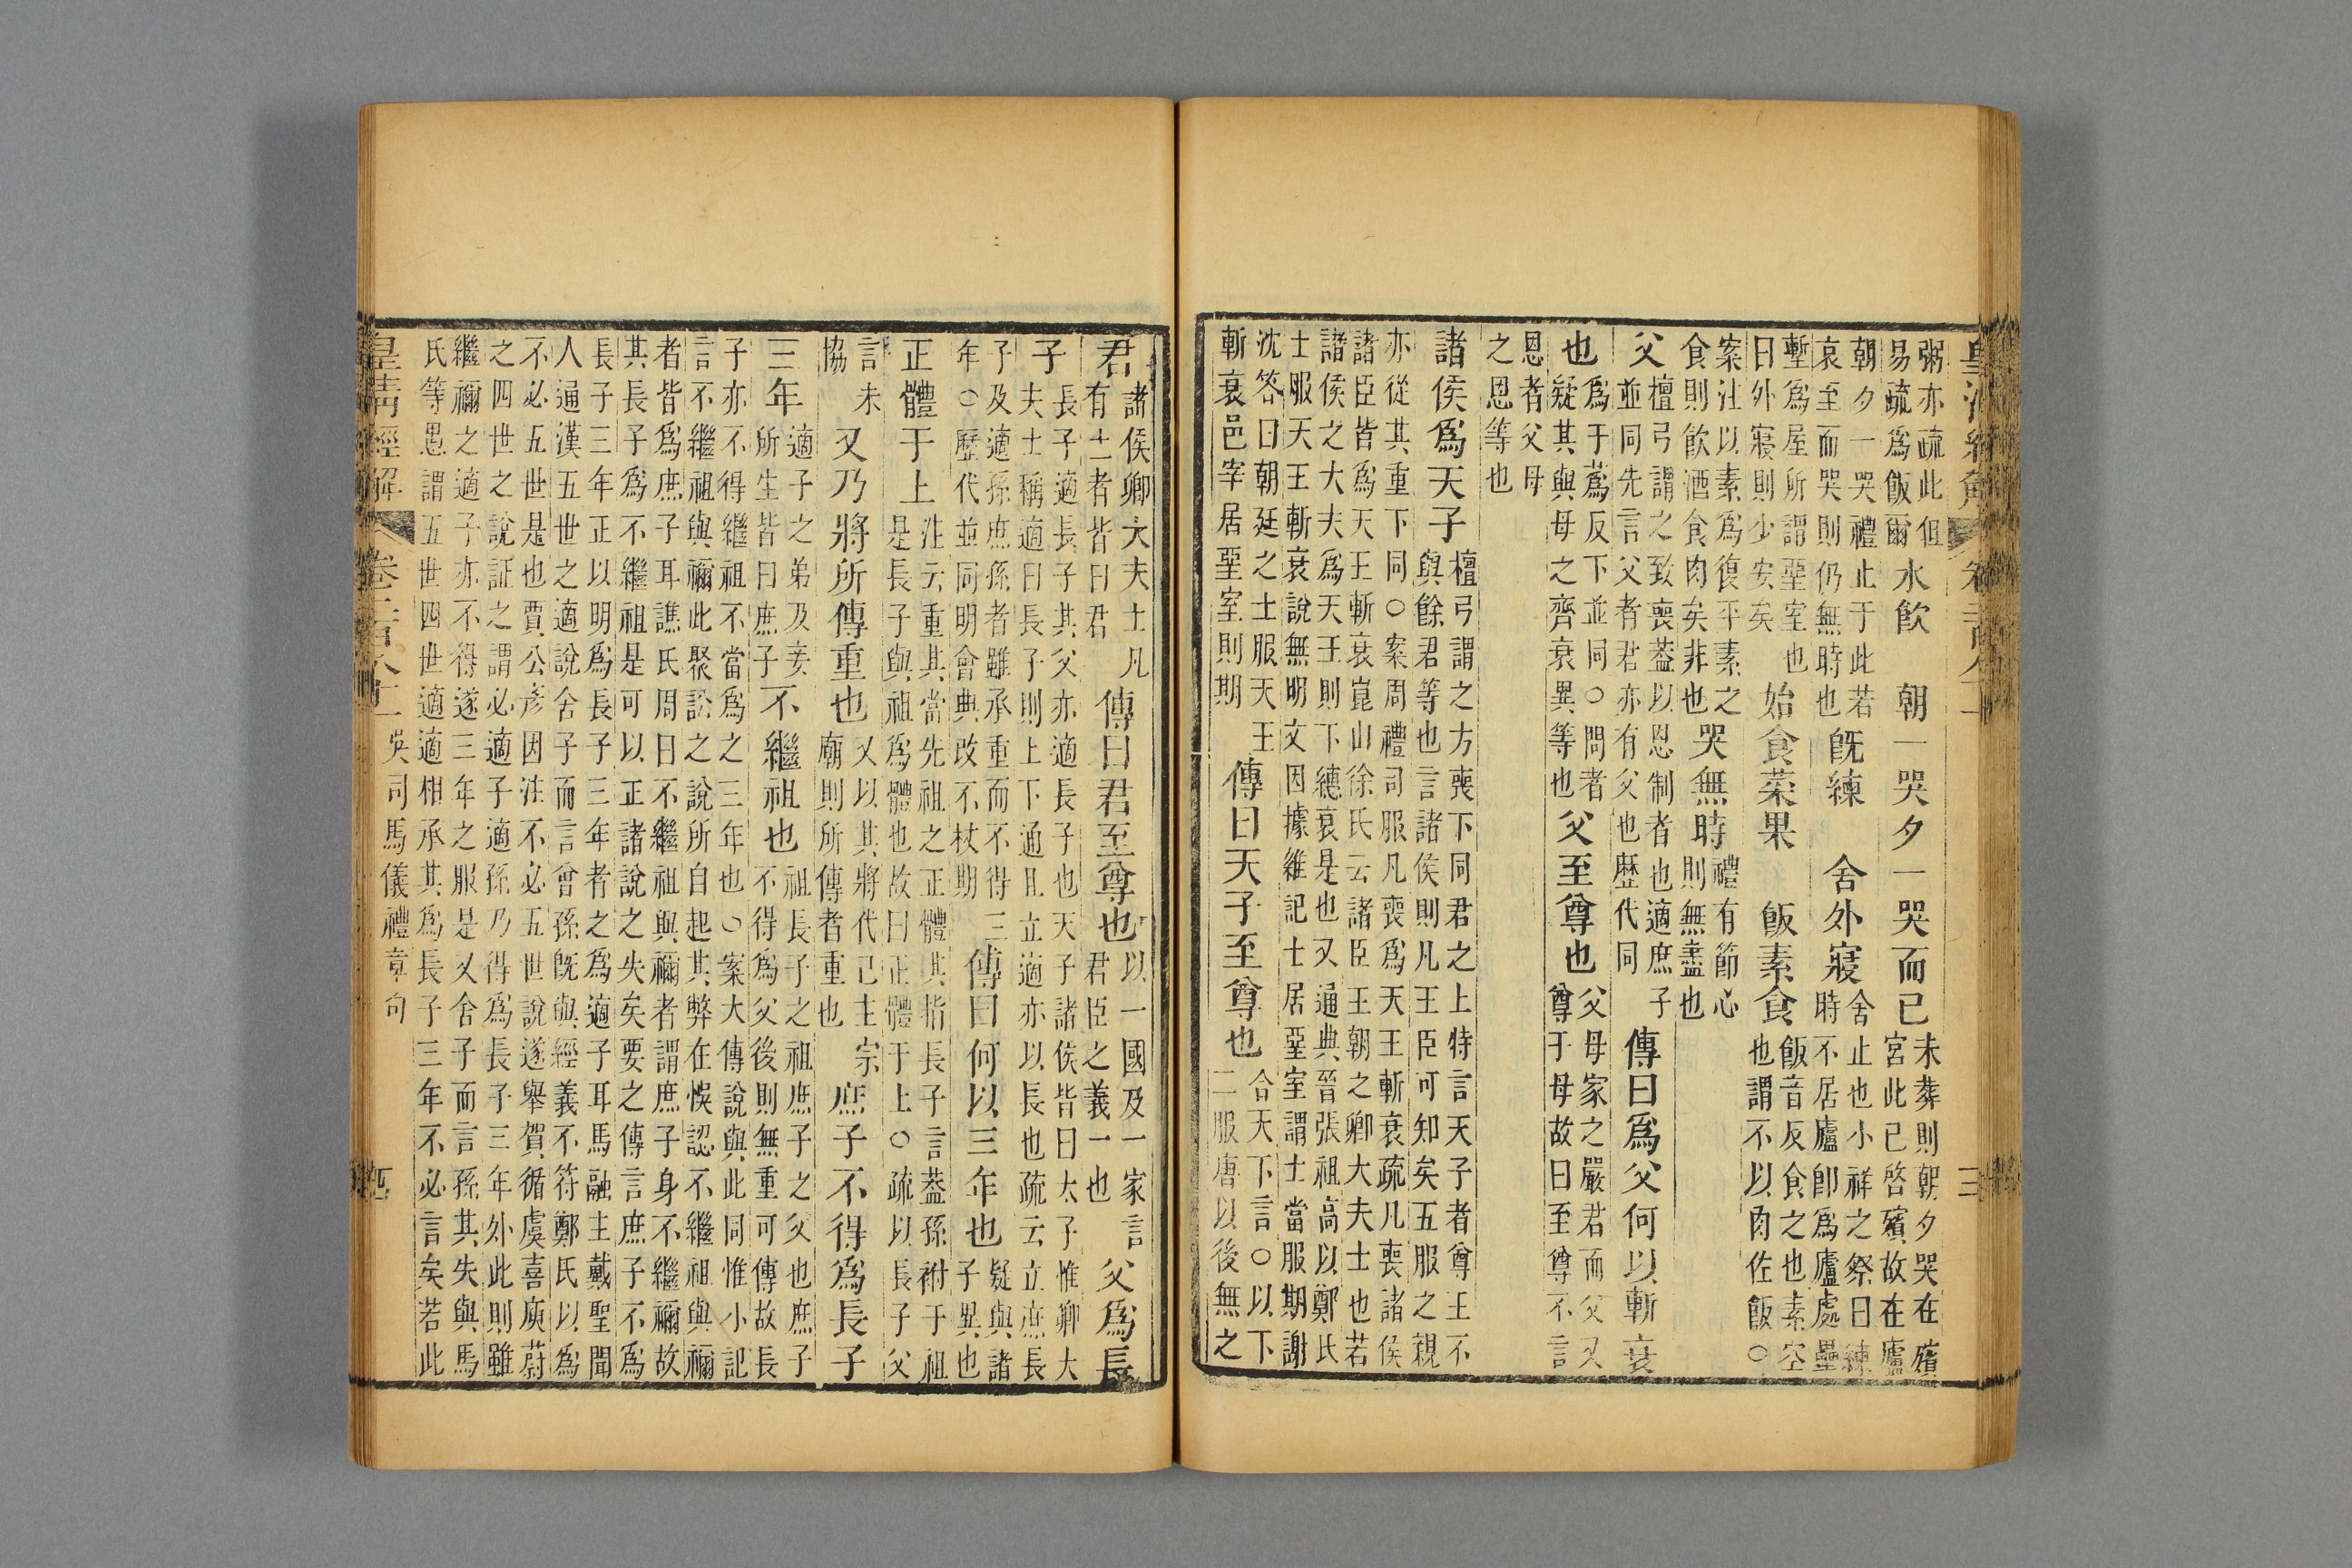 粥亦疏此但
易疏爲飯爾
水飲 朝一哭夕一哭而已
未葬則朝夕哭在殯
宮此已啓殯故在廬
朝夕一哭禮止于此若
哀至而哭則仍無時也
旣練 舍外寢
舍止也小祥之祭曰練
時不居廬卽爲廬處壘
塹爲屋所謂堊室也
曰外寢則少安矣
始食菜果 飯素食
飯音反食之也素空
也謂不以肉佐飯○
案注以素爲復平素之
食則飲酒食肉矣非也
哭無時
禮有節心
則無盡也
父
檀弓謂之致喪葢以恩制者也適庶子
並同先言父者君亦有父也歷代同
傳曰爲父何以斬衰
也
爲于蒍反下並同○問者
疑其與母之齊衰異等也
父至尊也
父母家之嚴君而父又
尊于母故曰至尊不言
恩者父母
之恩等也
諸侯爲天子
檀弓謂之方喪下同君之上特言天子者尊王不
與餘君等也言諸侯則凡王臣可知矣五服之親
亦從其重下同○案周禮司服凡喪爲天王斬衰疏凡喪諸侯
諸臣皆爲天王斬衰崑山徐氏云諸臣王朝之卿大夫士也若
諸侯之大夫爲天王則下繐衰是也又通典晉張祖高以鄭氏
士服天王斬衰說無明文因據雜記士居堊室謂士當服期謝
沈答曰朝廷之士服天王
斬衰邑宰居堊室則期
傳曰天子至尊也
合天下言○以下
二服唐以後無之
君
諸侯卿大夫士凡
有土者皆曰君
傳曰君至尊也
以一國及一家言
君臣之義一也
父爲長
子
長子適長子其父亦適長子也天子諸侯皆曰太子惟卿大
夫士稱適曰長子則上下通且立適亦以長也疏云立庶長
子及適孫庶孫者雖承重而不得三
年○歷代並同明會典改不杖期
傳曰何以三年也
疑與諸
子異也
正體于上
注云重其當先祖之正體其指長子言葢孫祔于祖
是長子與祖爲體也故曰正體于上○疏以長子父
言未
協
又乃將所傳重也
又以其將代己主宗
廟則所傳者重也
庶子不得爲長子
三年
適子之弟及妾
所生皆曰庶子
不繼祖也
祖長子之祖庶子之父也庶子
不得爲父後則無重可傳故長
子亦不得繼祖不當爲之三年也○案大傳說與此同惟小記
言不繼祖與禰此聚訟之說所自起其弊在悞認不繼祖與禰
者皆爲庶子耳譙氏周曰不繼祖與禰者謂庶子身不繼禰故
其長子爲不繼祖是可以正諸說之失矣要之傳言庶子不爲
長子三年正以明爲長子三年者之爲適子耳馬融主戴聖聞
人通漢五世之適說舍子而言會孫旣與經義不符鄭氏以爲
不必五世是也賈公彥因注不必五世說遂舉賀循虞喜庾蔚
之四世之說証之謂必適子適孫乃得爲長子三年外此則雖
繼禰之適子亦不得遂三年之服是又舍子而言孫其失與馬
氏等愚謂五世四世適適相承其爲長子三年不必言矣若此
皇清經解 吳司馬儀禮章句